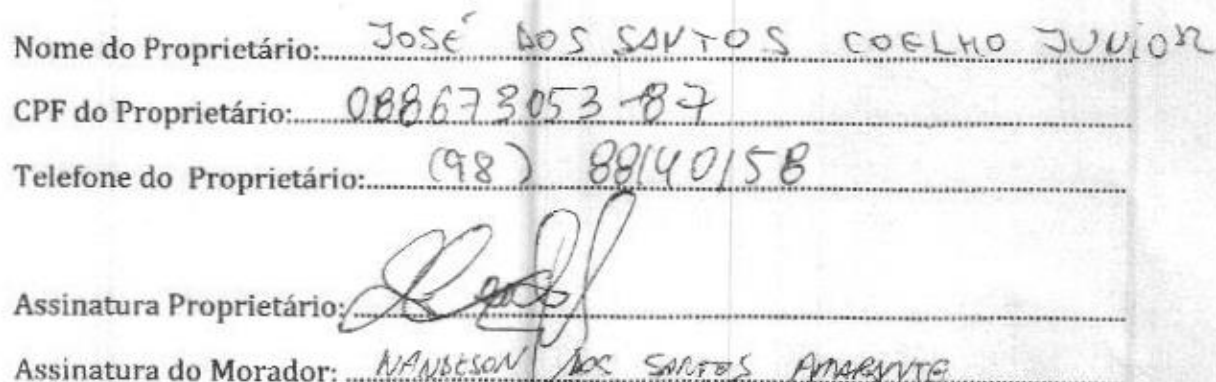 Nome do Proprietário: JOSÉ DOS SANTOS COELHO JUNIOR
CPF do Proprietário: 088673053-87
Telefone do Proprietário: (98) 88140158
Assinatura Proprietário:
Assinatura do Morador: WANDESON DOS SANTOS AMARANTE